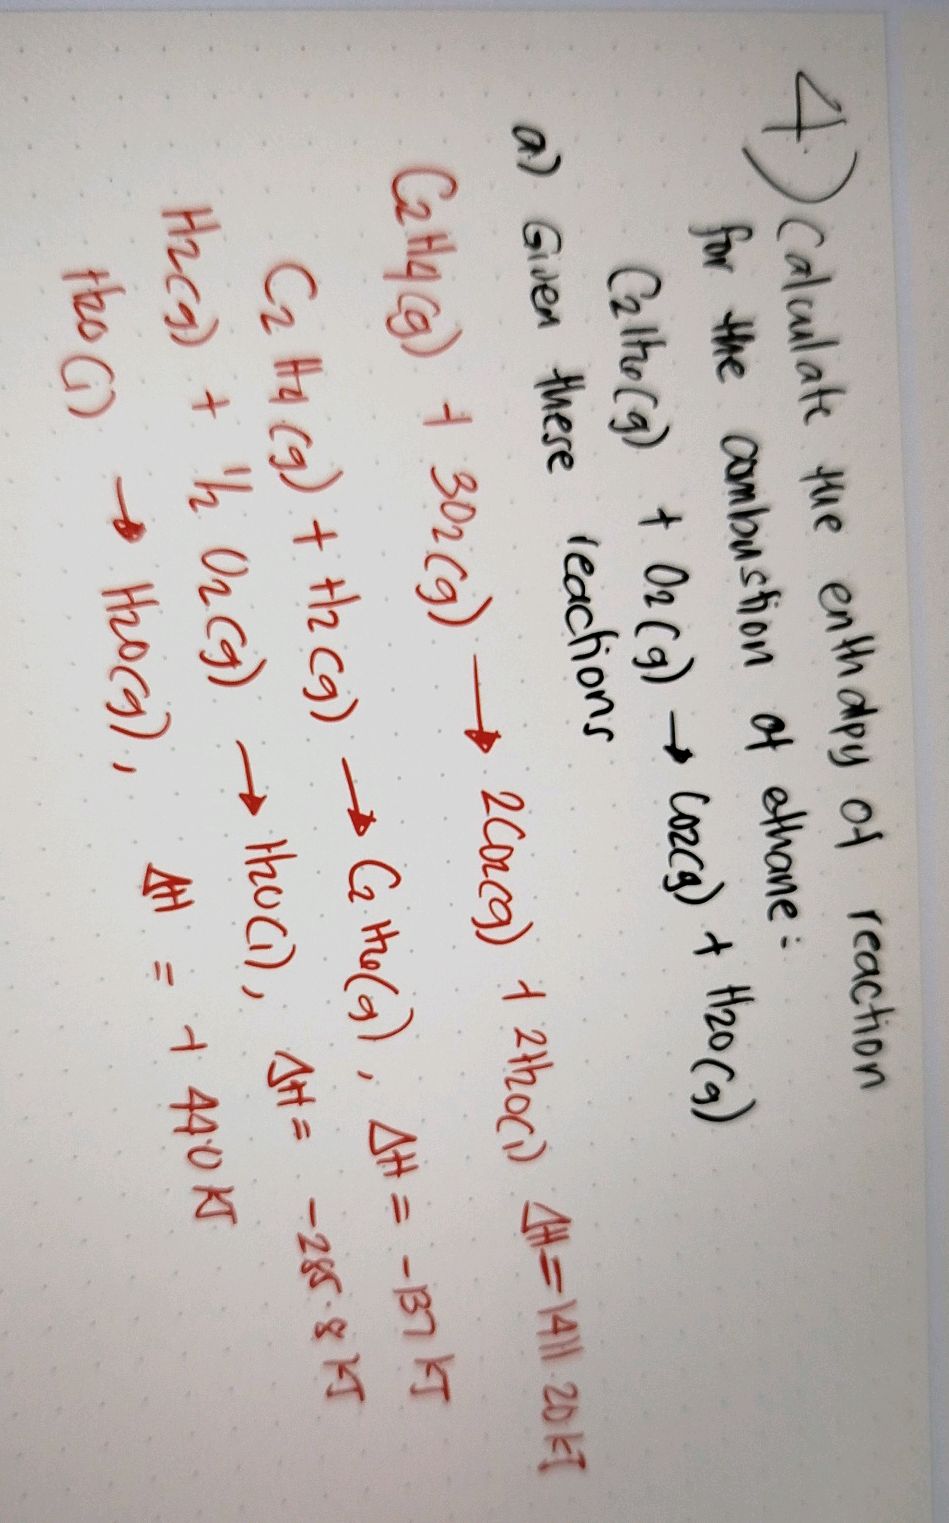 4) Calculate the enthalpy of reaction
for the combustion of ethane:
C2H6(g) + O2(g) → CO2(g) + H2O(g)
a) Given these reactions
C2H4(g) + 3O2(g) → 2CO2(g) + 2H2O(l) ΔH=1411.20kJ
C2H4(g) + H2(g) → C2H6(g), ΔH = -137 kJ
H2(g) + 1/2 O2(g) → H2O(l), ΔH = -285.8 kJ
H2O(l) → H2O(g), ΔH = +44.0 kJ